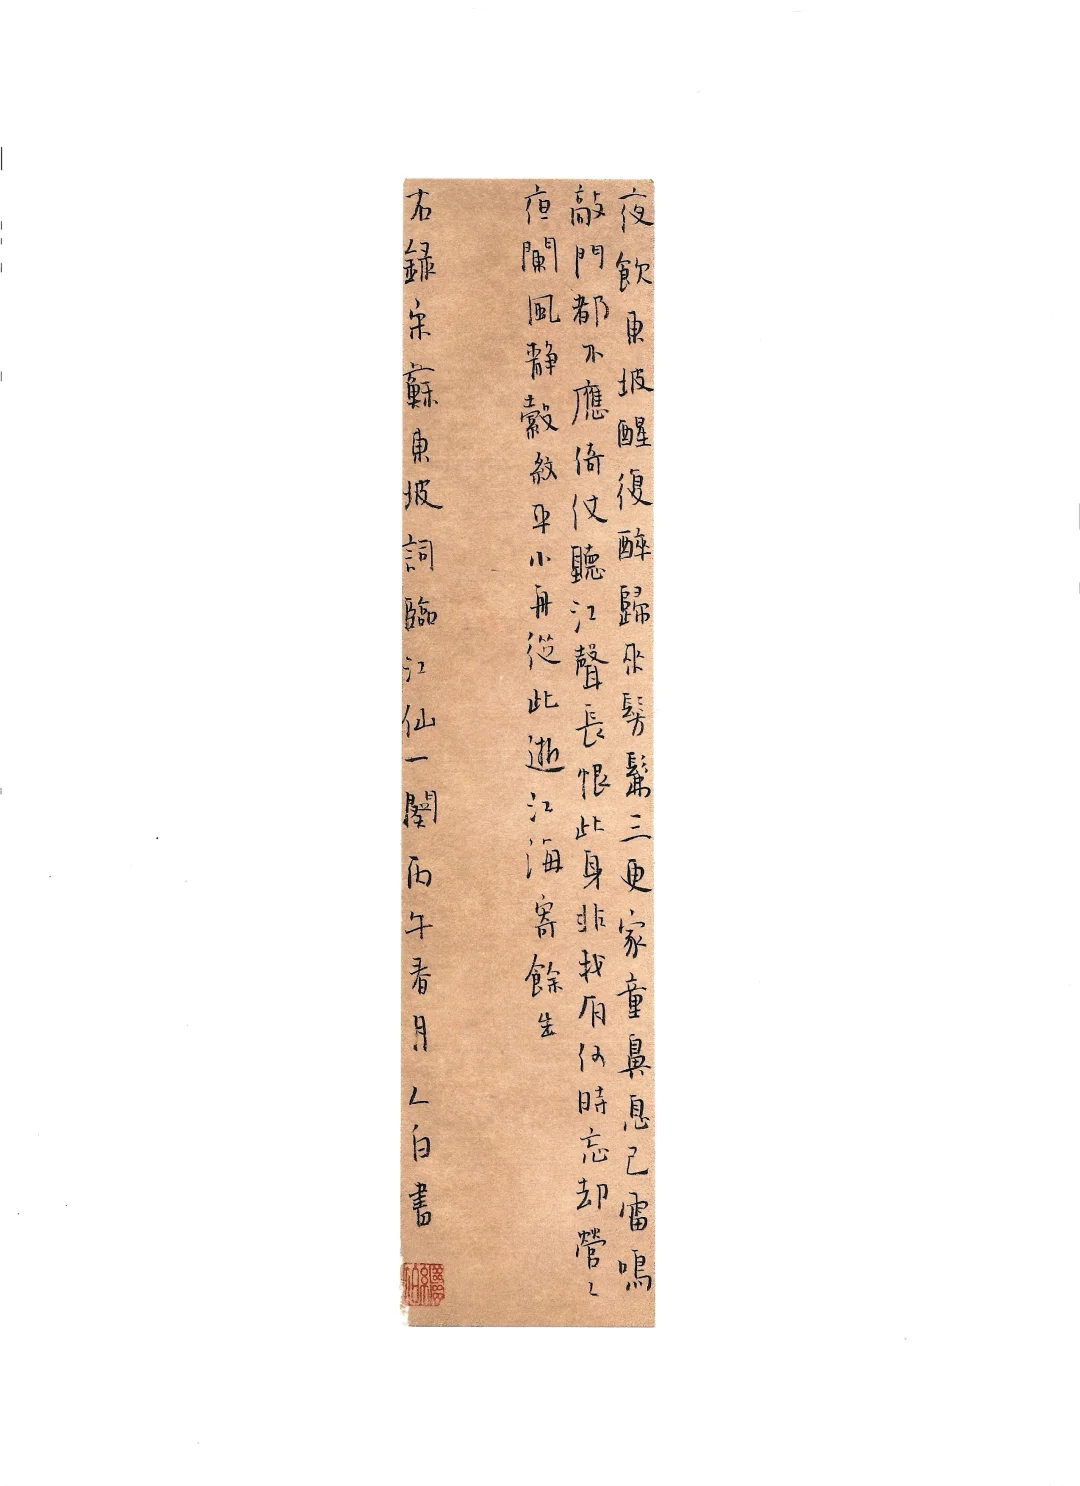 夜飲東坡醒復醉歸來髣髴三更家童鼻息已雷鳴
敲門都不應倚仗聽江聲長恨此身非我有何時忘却營〻
夜闌風静縠紋平小舟從此逝江海寄餘生
右録宋蘇東坡詞臨江仙一闋丙午春月乙白書